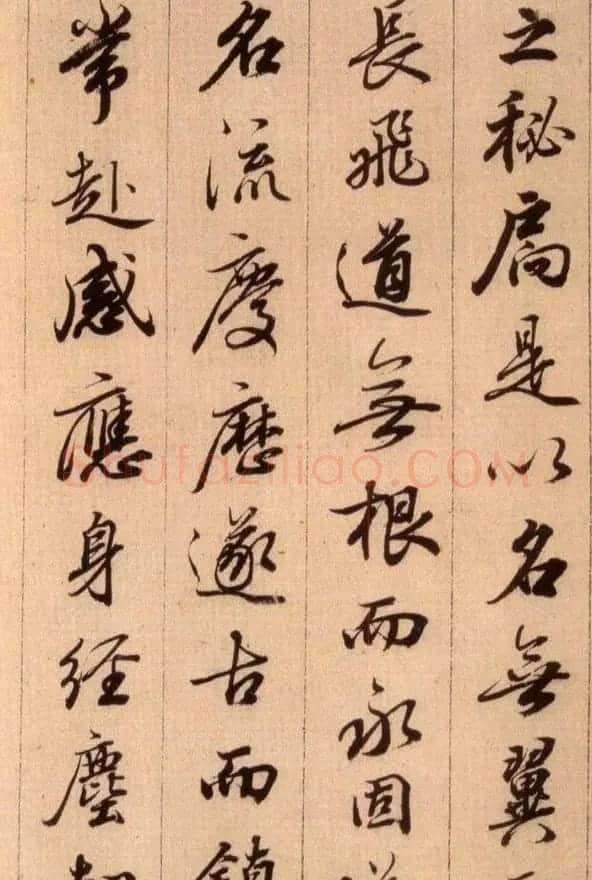 之秘扃是以名無翼
長飛道無根而永固
名流慶歷遂古而鎮
常赴感應身經塵劫
shufaziliao.COM